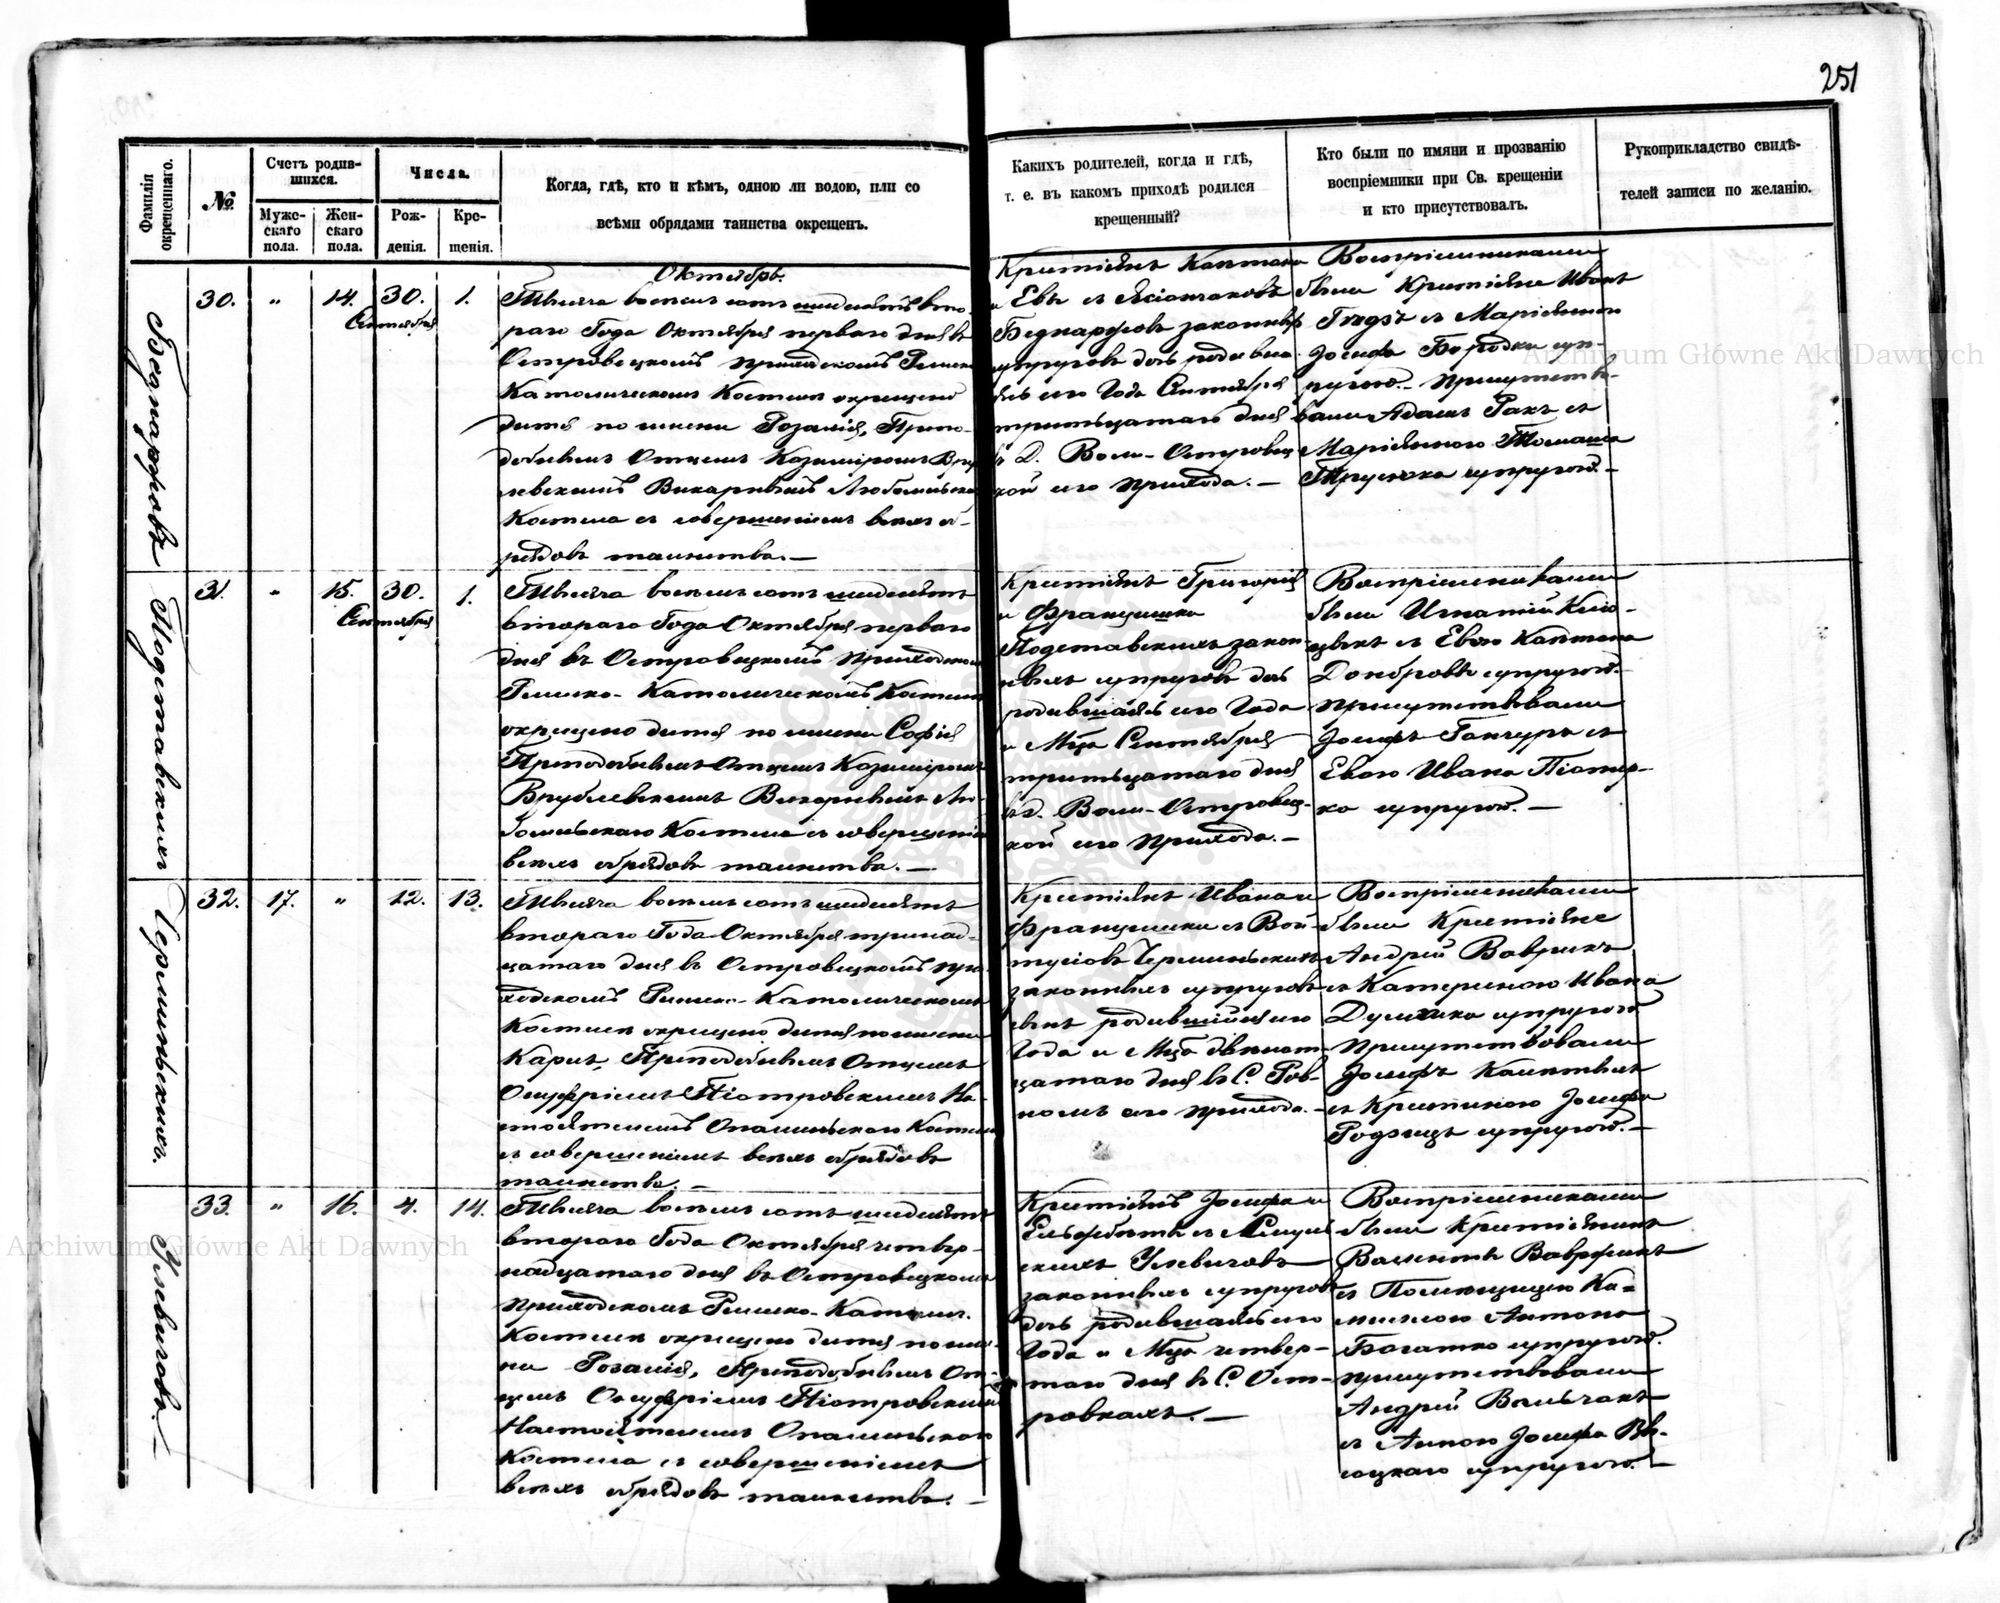 251
Фамилія окрещеннаго.
№.
Счетъ родив-
шихся.
Муже-
скаго
пола.
Жен-
скаго
пола.
Числа.
Рож-
денія.
Кре-
щенія.
Когда, гдѣ, кто и кѣмъ, одною ли водою, или со
всѣми обрядами таинства окрещенъ.
Какихъ родителей, когда и гдѣ,
т. е. въ какомъ приходѣ родился
крещенный?
Кто были по имяни и прозванію
воспріемники при Св. крещеніи
и кто присутствовалъ.
Рукоприкладство свидѣ-
телей записи по желанію.
Беднаржовъ
30. „ 14. 30. 1.
Сентября
Октябрь.
Тысяча восемь сотъ шесдесятъ вто-
раго Года Октября перваго дня въ
Островецкомъ приходскомъ Римско
Католическомъ Костелѣ окрещено
дитя по имени Розалія, Препо-
добнымъ Отцемъ Казимиромъ Вруб
левскимъ Викарнымъ Любомльска
Костела съ совершеніемъ всѣхъ об-
рядовъ таинства. —
Крестьянъ
и Евы съ
Беднаржовъ законныхъ
супруговъ дочь родивша
сего Года Сентября
тритьцатаго дня
въ Д. Воли-Островец
кой сего прихода. —
Воспріемниками
были Крестьяне Иванъ
съ Маріянною
Іосифа Бородки суп-
ругою. Присутство-
вали Адамъ Ракъ съ
Маріянною Томаша
супругою. —
Подставскихъ
31. „ 15. 30. 1.
Сентября
Тысяча восемь сотъ шесдесятъ
втораго Года Октября перваго
дня въ Островецкомъ приходском
Римско-Католическомъ Костелѣ
окрещено дитя по имени Софія
Преподобнымъ Отцемъ Казимиромъ
Врублевскимъ Викарнымъ Лю-
бомльскаго Костела съ совершеніе
всѣхъ обрядовъ таинства. —
Крестьянъ Григорія
и Францишки
Подставскихъ закон-
ныхъ супруговъ дочь
родившаяся сего Года
и Мца Сентября
тритьцатаго дня
въ д. Воли-Островец-
кой сего прихода. —
Воспріемниками
были Игнатій
съ Евою
супругою.
Присутствовали
Іосифъ Ганчуръ съ
Евою Ивана Піотер-
ка супругою. —
Черминьскихъ.
32. 17. „ 12. 13.
Тысяча восемь сотъ шесдесятъ
втораго Года Октября тринад-
цатаго дня въ Островецкомъ при-
ходскомъ Римско-Католическомъ
Костелѣ окрещено дитя по имени
Карлъ, Преподобнымъ Отцемъ
Онуфріемъ Піотровскимъ На-
стоятелемъ Опалиньскаго Костел
съ совершеніемъ всѣхъ обрядовъ
таинства. —
Крестьянъ Ивана и
Францишки съ Вой-
Черминьскихъ
законныхъ супруговъ
сынъ родившійся сего
Года и Мца двѣнат-
цатаго дня въ С. Ров-
номъ сего прихода. —
Воспріемниками
были Крестьяне
Андрей Ваврикъ
съ Катериною Ивана
супругою
Присутствовали
Іосифъ
съ Кристиною Іосифа
супругою. —
Улевичовъ. —
33. „ 16. 4. 14.
Тысяча восемь сотъ шесдесятъ
втораго Года Октября четвер-
надцатаго дня въ Островецкомъ
приходскомъ Римско-Католич.
Костелѣ окрещено дитя по име-
ни Розалія, Преподобнымъ От-
цемъ Онуфріемъ Піотровскимъ
Настоятелемъ Опалиньскаго
Костела съ совершеніемъ
всѣхъ обрядовъ таинства. —
Крестьянъ Іосифа и
Ельжбѣты съ
скихъ Улевичовъ
законныхъ супруговъ
дочь родившаяся сего
Года и Мца четвер-
таго дня въ С. Ост-
ровкахъ. —
Воспріемниками
были Крестьянинъ
съ Помѣщицею Ка-
милею Антона
Богатко супругою.
Присутствовали
Андрей Вальчакъ
съ Анною Іосифа Вы-
соцкаго супругою. —
Archiwum Główne Akt Dawnych
Archiwum Główne Akt Dawnych